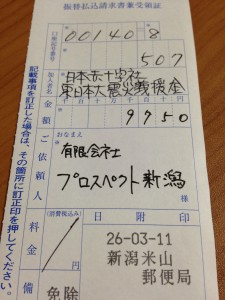 振替払込請求書兼受領証
口座記号番号
00140 8
507
加入者名
日本赤十字社
東日本大震災義援金
金額
千百十万千百十円
9750
ご依頼人
おなまえ
有限会社
プロスペクト新潟
様
料金
(消費税込み)
日附印
26-03-11
新潟米山
郵便局
備
免除
記載事項を訂正した場合は、その箇所に訂正印を押してください。